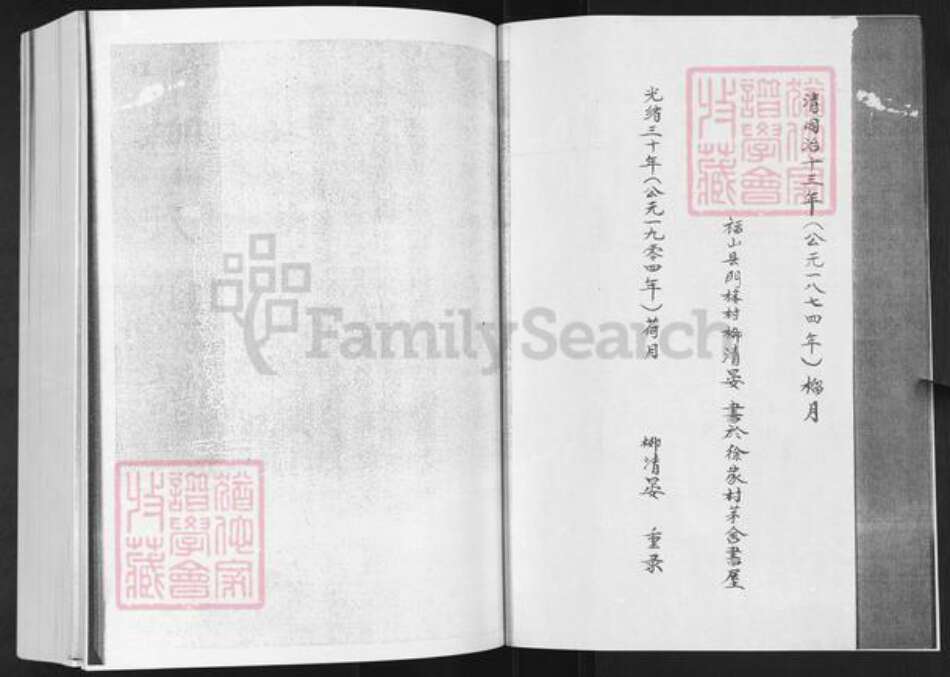 清同治十三年（公元一八七四年）榴月
福山县門樓村柳清晏書於徐家村茅舍書屋
光緒三十年（公元一九零四年）荷月
柳清晏 重录
猶他家譜學會收藏
猶他家譜學會收藏
FamilySearch